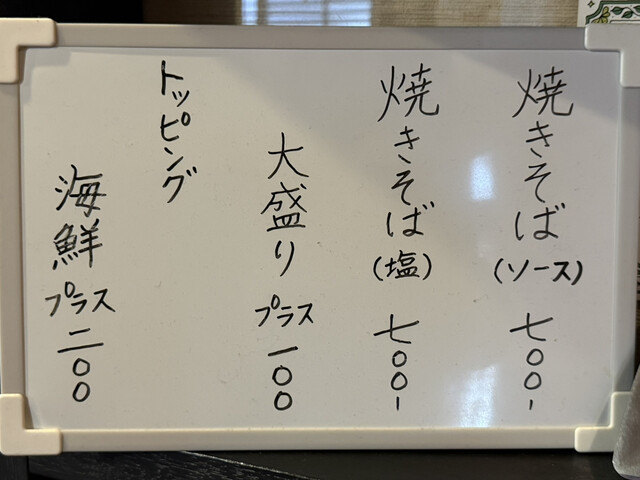 焼きそば(ソース)七〇〇-
焼きそば(塩)七〇〇-
大盛り プラス一〇〇
トッピング
海鮮 プラス二〇〇